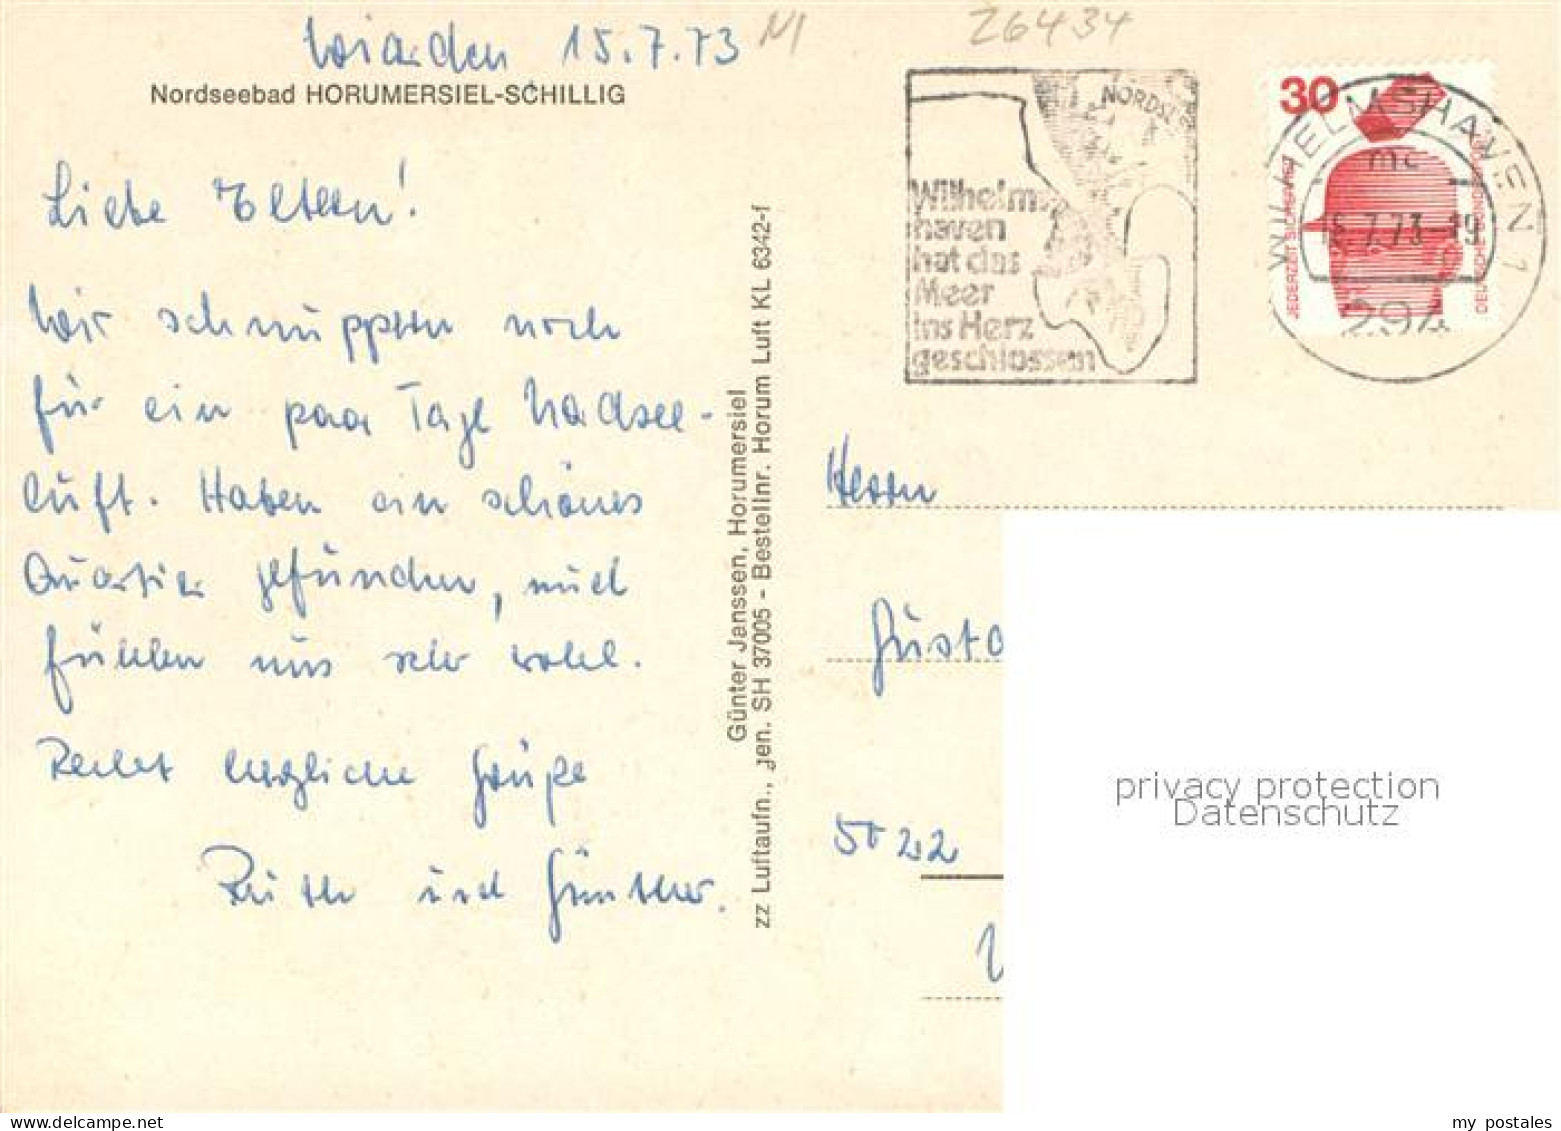 Wiarden 15.7.73
NI
26434
Nordseebad HORUMERSIEL-SCHILLIG
Liebe Eltern!
Wir schnuppern noch
für ein paar Tage Nordsee-
luft. Haben ein schönes
Quartier gefunden, und
fühlen uns sehr wohl.
Recht herzliche Grüße
Ruth und Günther.
Günter Janssen, Horumersiel
zz Luftaufn., gen. SH 37005 - Bestellnr. Horum Luft KL 6342-f
NORDSEE
Wilhelms-
haven
hat das
Meer
ins Herz
geschlossen
30
JEDERZEIT SICHERHEIT
DEUTSCHE BUNDESPOST
WILHELMSHAVEN 1
mc
15.7.73-19
294
Herrn
Gusta
5022
privacy protection
Datenschutz
www.delcampe.net
my postales